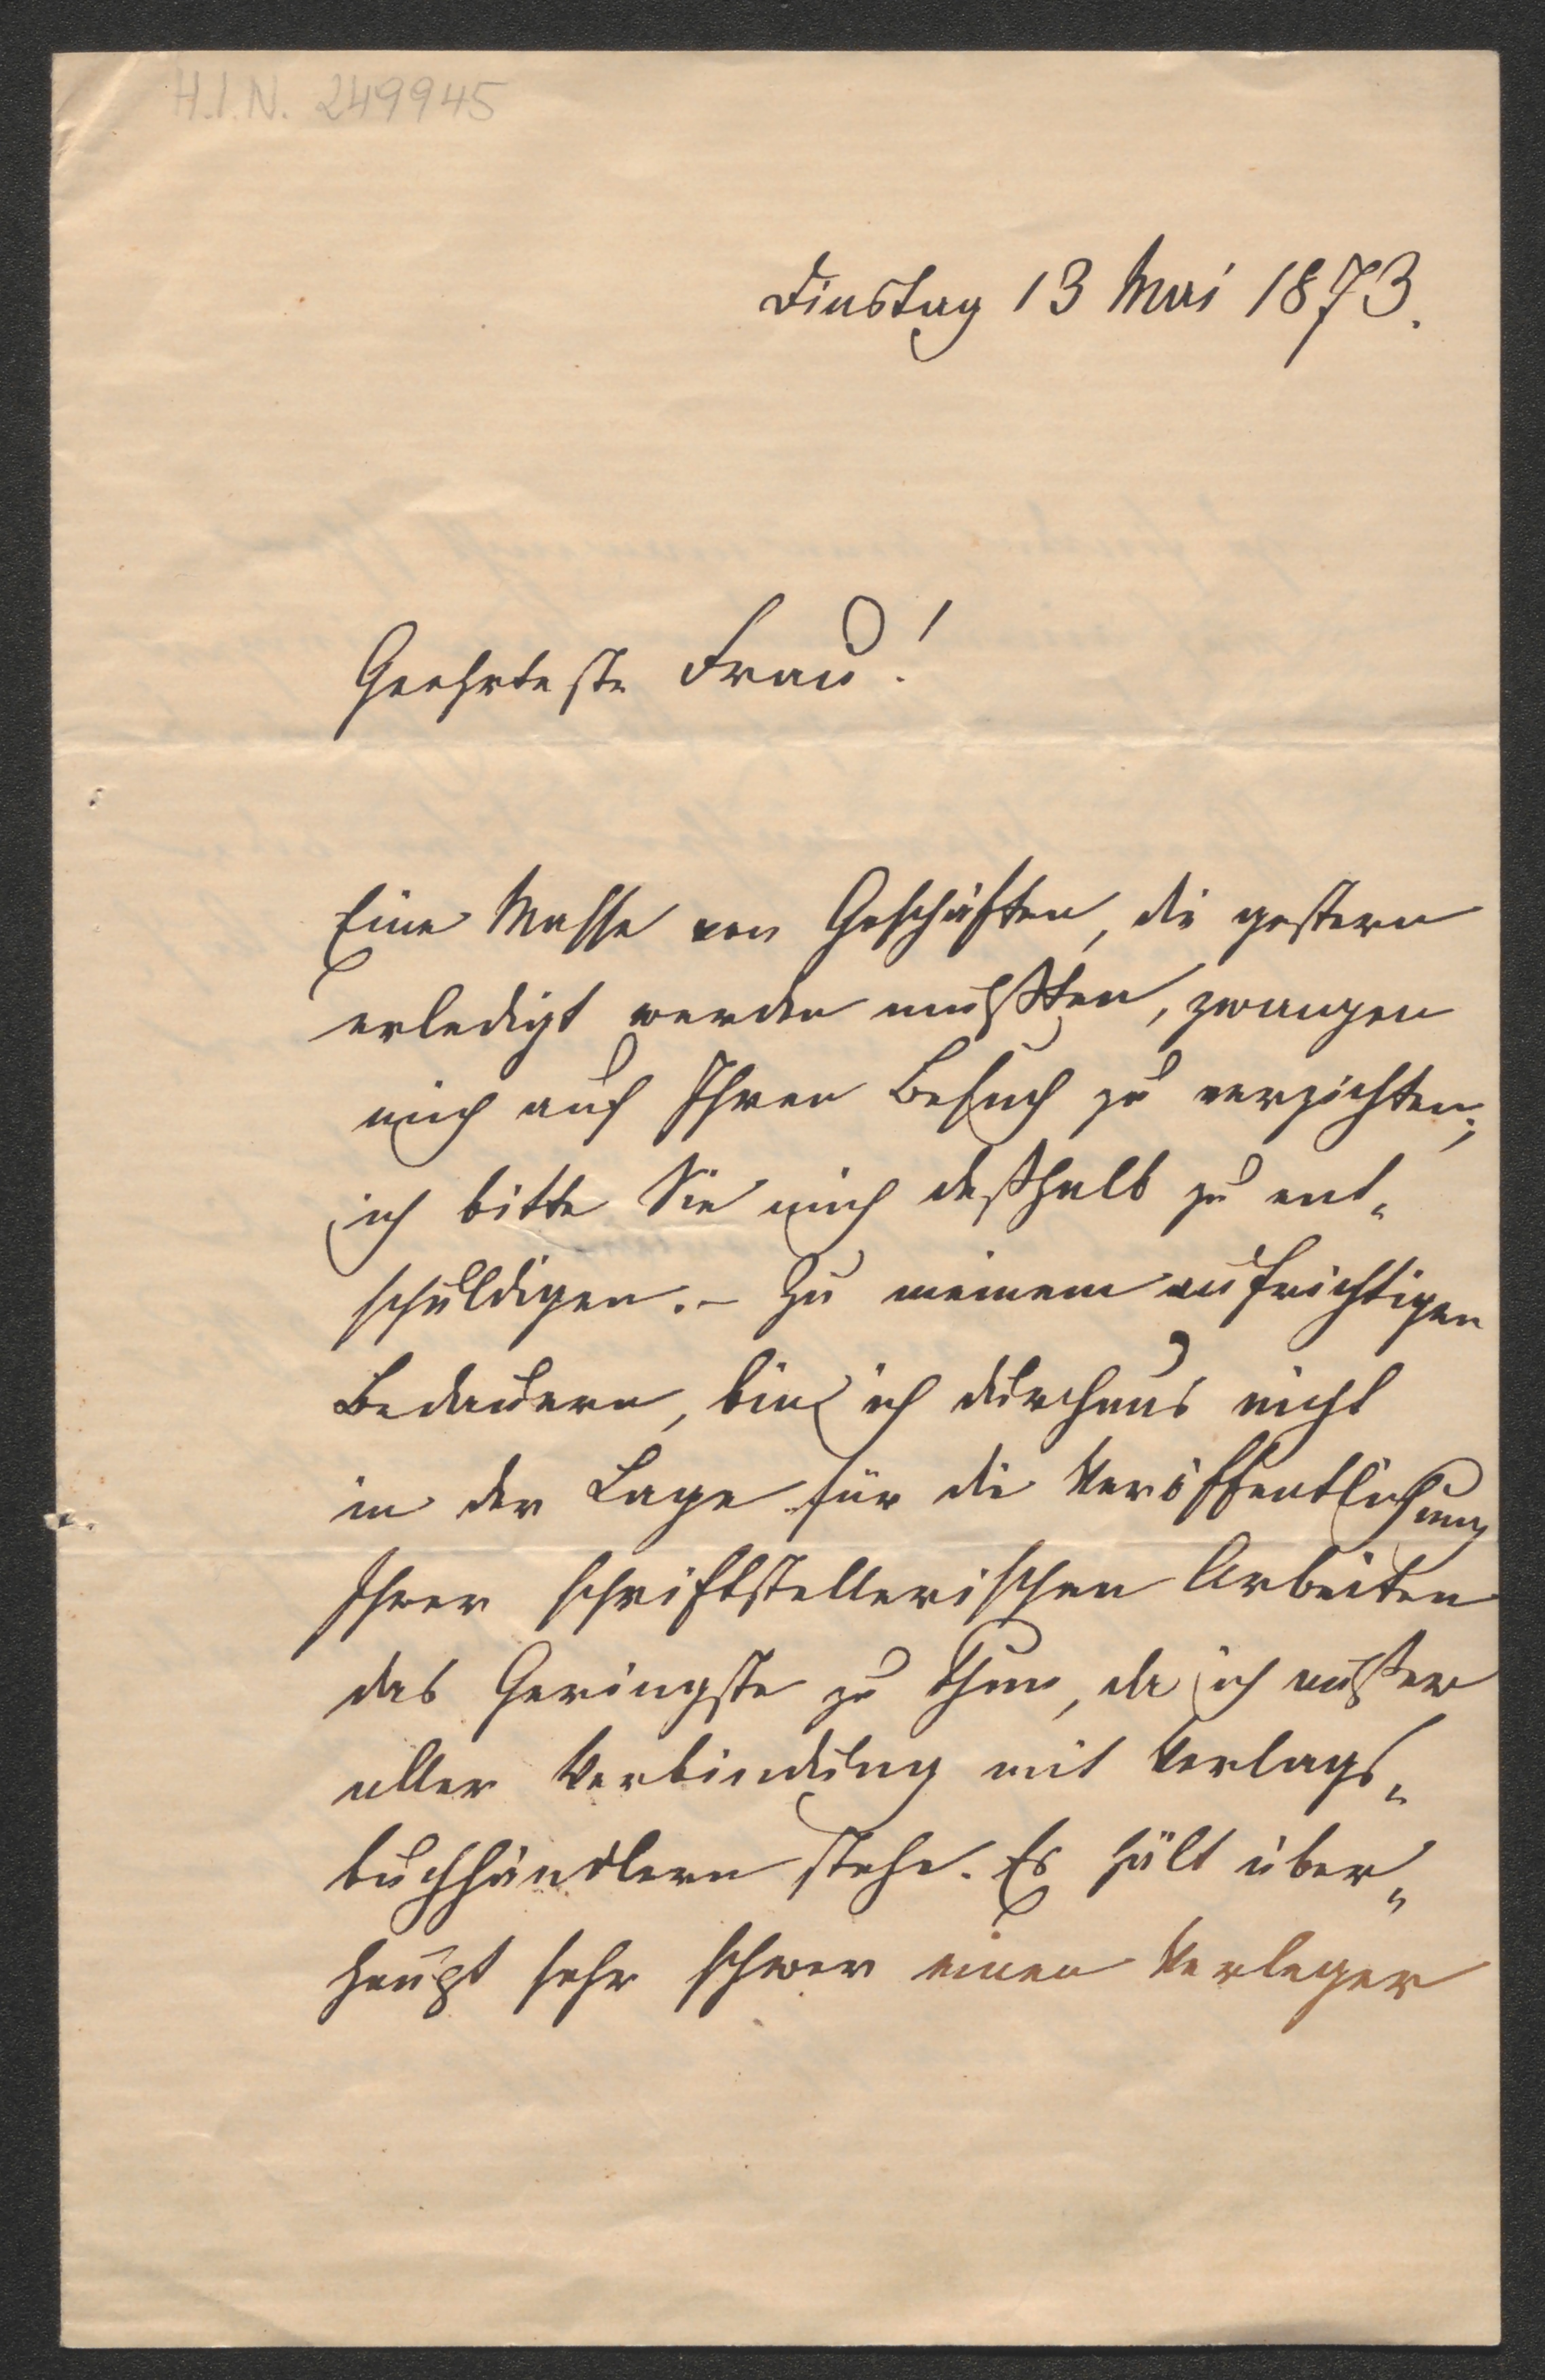 H.I.N. 249945
Dinstag 13 Mai 1873.
Geehrteste Frau!
Eine Masse von Geschäften, die gestern
erledigt werden mußten, zwangen
mich auf Ihren Besuch zu verzichten;
ich bitte Sie mich deßhalb zu ent„
schuldigen. – Zu meinem aufrichtigen
Bedauern, bin ich durchaus nicht
in der Lage für die Veröffentlichung
Ihrer schriftstellerischen Arbeiten
das Geringste zu thun, da ich außer
aller Verbindung mit Verlags„
buchhändlern stehe. Es hält über„
haupt sehr schwer einen Verleger